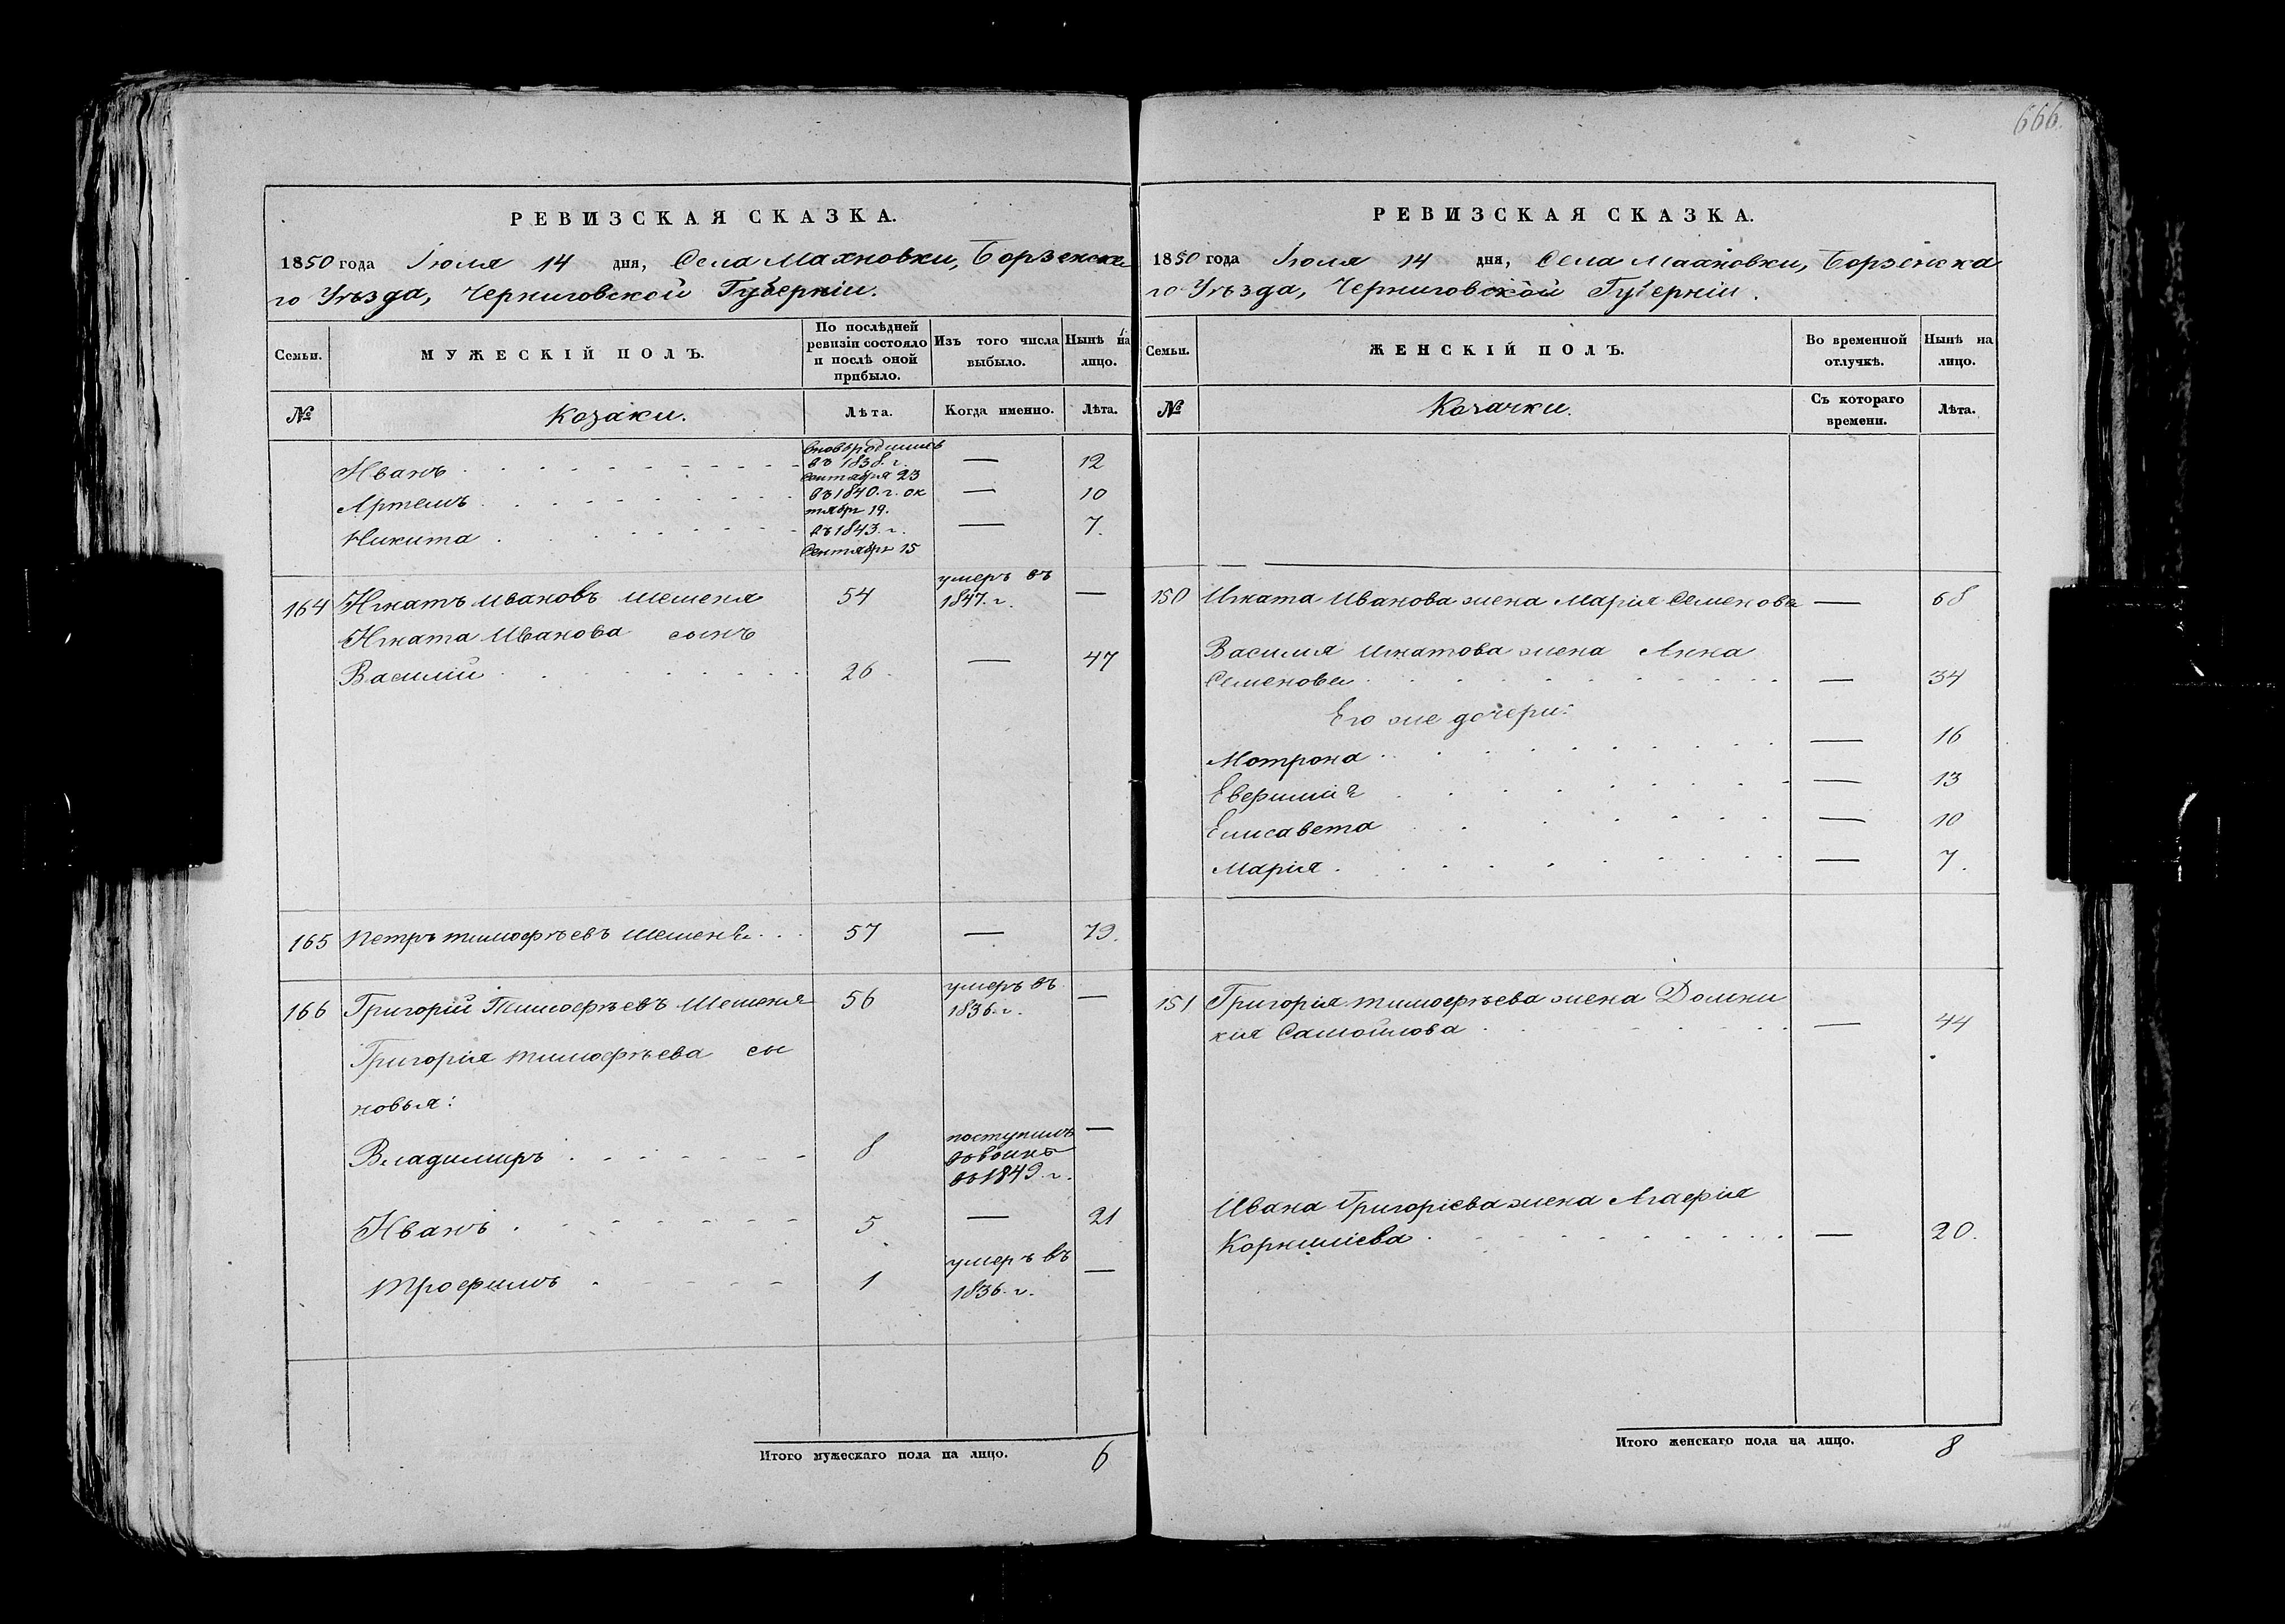 666.
РЕВИЗСКАЯ СКАЗКА.
1850 года Іюля 14 дня, Села Махновки, Борзенска
го Уѣзда, Черниговской Губерніи.
Семьи.
МУЖЕСКІЙ ПОЛЪ.
По послѣдней ревизіи состояло и послѣ оной прибыло.
Изъ того числа выбыло.
Нынѣ на лицо.
№
Козаки.
Лѣта.
Когда именно.
Лѣта.
Иванъ — 12
въ 1838. г.
Сентября 23
Артемъ — 10
въ 1840. г. ок
тябр 19.
Никита — 7.
въ 1843. г.
Сентябр 15
164 Игнатъ Ивановъ Шешеня 54 умеръ въ 1847. г. —
Игната Иванова сынъ
Василій 26 — 47
165 Петръ Тимофѣевъ Шешеня 57 — 79.
166 Григорій Тимофѣевъ Шешеня 56 умеръ въ 1836. г. —
Григорія Тимофѣева сы
новья:
Владимиръ 8 поступилъ въ 1849. г. —
Иванъ 5 — 21
Трофимъ 1 умеръ въ 1836. г. —
Итого мужескаго пола на лицо. 6
РЕВИЗСКАЯ СКАЗКА.
1850 года Іюля 14 дня, Села Махновки, Борзенска
го Уѣзда, Черниговской Губерніи.
Семьи.
ЖЕНСКІЙ ПОЛЪ.
Во временной отлучкѣ.
Нынѣ на лицо.
№
Козачки.
Съ котораго времени.
Лѣта.
150 Игната Иванова жена Марія Семенова — 68
Василія Игнатова жена Анна
Семенова — 34
Его же дочери:
Мотрона — 16
Евфимія — 13
Елисавета — 10
Марія — 7.
151 Григорія Тимофѣева жена Домни
кія Самойлова — 44
Ивана Григоріева жена Агафія
Корниліева — 20.
Итого женскаго пола на лицо. 8